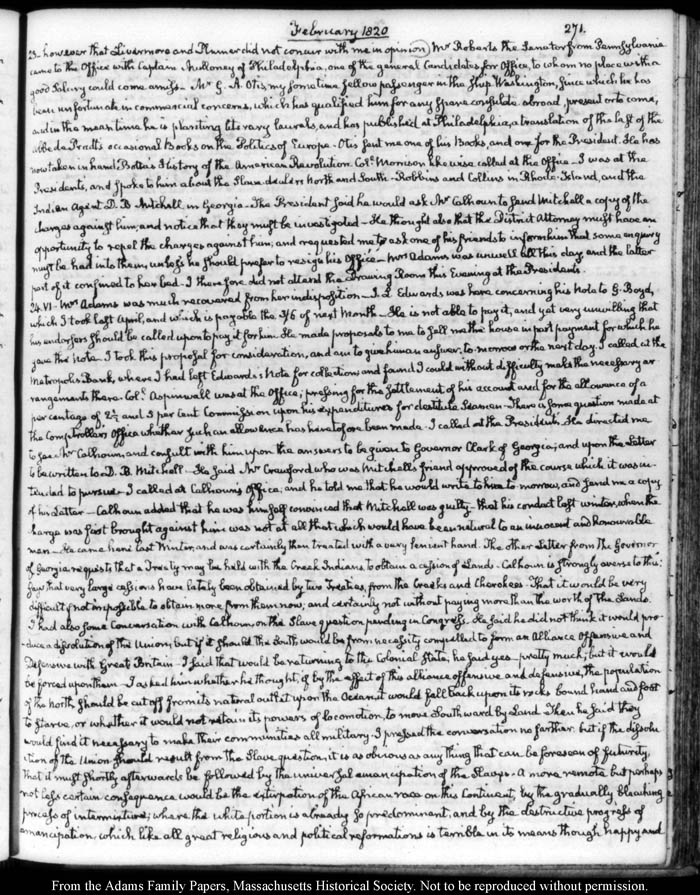 February 1820 271.
23. however that Livermore and Plumer did not concur with me in opinion) Mr Roberts the Senator from Pennsylvania
came to the Office with Captain Mullowny of Philadelphia, one of the general Candidates for Office, to whom no place with a
good Salary could come amiss — Mr G. A. Otis, my sometime fellow passenger in the Ship Washington, Since which he has
been unfortunate in commercial concerns, which has qualified him for any Spare consulate abroad, present or to come,
and in the mean time he is planting literary laurels, and has published at Philadelphia, a translation of the last of the
Abbé de Pradt's occasional Books on the Politics of Europe — Otis sent me one of his Books, and one for the President. He has
now taken in hand Botta's History of the American Revolution. Coll. Morrison likewise called at the Office — I was at the
Presidents, and spoke to him about the Slave-dealers North and South — Robbins and Collins in Rhode-Island, and the
Indian Agent D. B. Mitchell, in Georgia — The President said he would ask Mr Calhoun to send Mitchell a copy of the
charges against him, and notice that they must be investigated — He thought also that the District Attorney must have an
opportunity to repel the charges against him; and requested me to ask one of his friends to inform him that some enquiry
must be had into them, unless he should prefer to resign his Office — Mrs Adams was unwell all this day, and the latter
part of it confined to her bed — I therefore did not attend the Drawing Room this Evening at the Presidents.
24. VI — Mrs Adams was much recovered from her indisposition — J. L. Edwards was here concerning his Note to G. Boyd,
which I took last April, and which is payable the 3/6 of next Month — He is not able to pay it, and yet very unwilling that
his endorsers should be called upon to pay it for him. He made proposals to me to sell me the house in part payment for which he
gave the Note. I took this proposal for consideration, and am to give him an answer, to-morrow or the next day. I called at the
Metropolis Bank, where I had left Edwards's Note for collection, and found I could without difficulty make the necessary ar-
rangements there. Coll. Aspinwall was at the Office; pressing for the settlement of his account and for the allowance of a
percentage of 2½ and 5 per Cent Commission upon his expenditures for destitute Seamen — There is some question made at
the Comptrollers Office whether such an allowance has heretofore been made. I called at the Presidents. He directed me
to see Mr Calhoun, and consult with him upon the answers to be given to Governor Clark of Georgia; and upon the Letter
to be written to D. B. Mitchell — He said Mr Crawford who was Mitchell's friend approved of the course which it was in-
tended to pursue — I called at Calhoun's Office; and he told me that he would write to him to-morrow, and send me a copy
of his Letter — Calhoun added that he was himself convinced that Mitchell was guilty — that his conduct last winter, when the
charge was first brought against him was not at all that which would have been natural to an innocent and honourable
man — He came here last Winter, and was certainly then treated with a very lenient hand. The other Letter from the Governor
of Georgia requests that a Treaty may be held with the Creek Indians to obtain a cession of Lands — Calhoun is strongly averse to this;
says that very large cessions have lately been obtained by two Treaties, from the Creeks and Cherokees — That it would be very
difficult if not impossible to obtain more from them now; and certainly not without paying more than the worth of the Lands.
I had also some Conversation with Calhoun, on the Slave question pending in Congress. He said he did not think it would pro-
duce a dissolution of the Union; but if it should the South would be from necessity compelled to form an Alliance Offensive and
Defensive with Great Britain — I said that would be returning to the Colonial State; he said yes, pretty much, but it would
be forced upon them — I asked him whether he thought, if by the effect of this alliance offensive and defensive, the population
of the North should be cut off from its natural outlet upon the Ocean it would fall back upon its rocks bound hand and foot
to starve, or whether it would not retain its powers of locomotion, to move Southward by Land. Then he said they
would find it necessary to make their communities all military. I pressed the conversation no farther. but if the dissolu-
tion of the Union should result from the Slave question, it is as obvious as any thing that can be foreseen of futurity,
that it must shortly afterwards be followed by the universal emancipation of the Slaves — A more remote but perhaps
not less certain consequence would be the extirpation of the African race on this Continent, by the gradually bleaching
process of intermixture, where the white portion is already so predominant; and by the destructive progress of
emancipation, which like all great religious and political reformations is terrible in its means though happy and
From the Adams Family Papers, Massachusetts Historical Society. Not to be reproduced without permission.